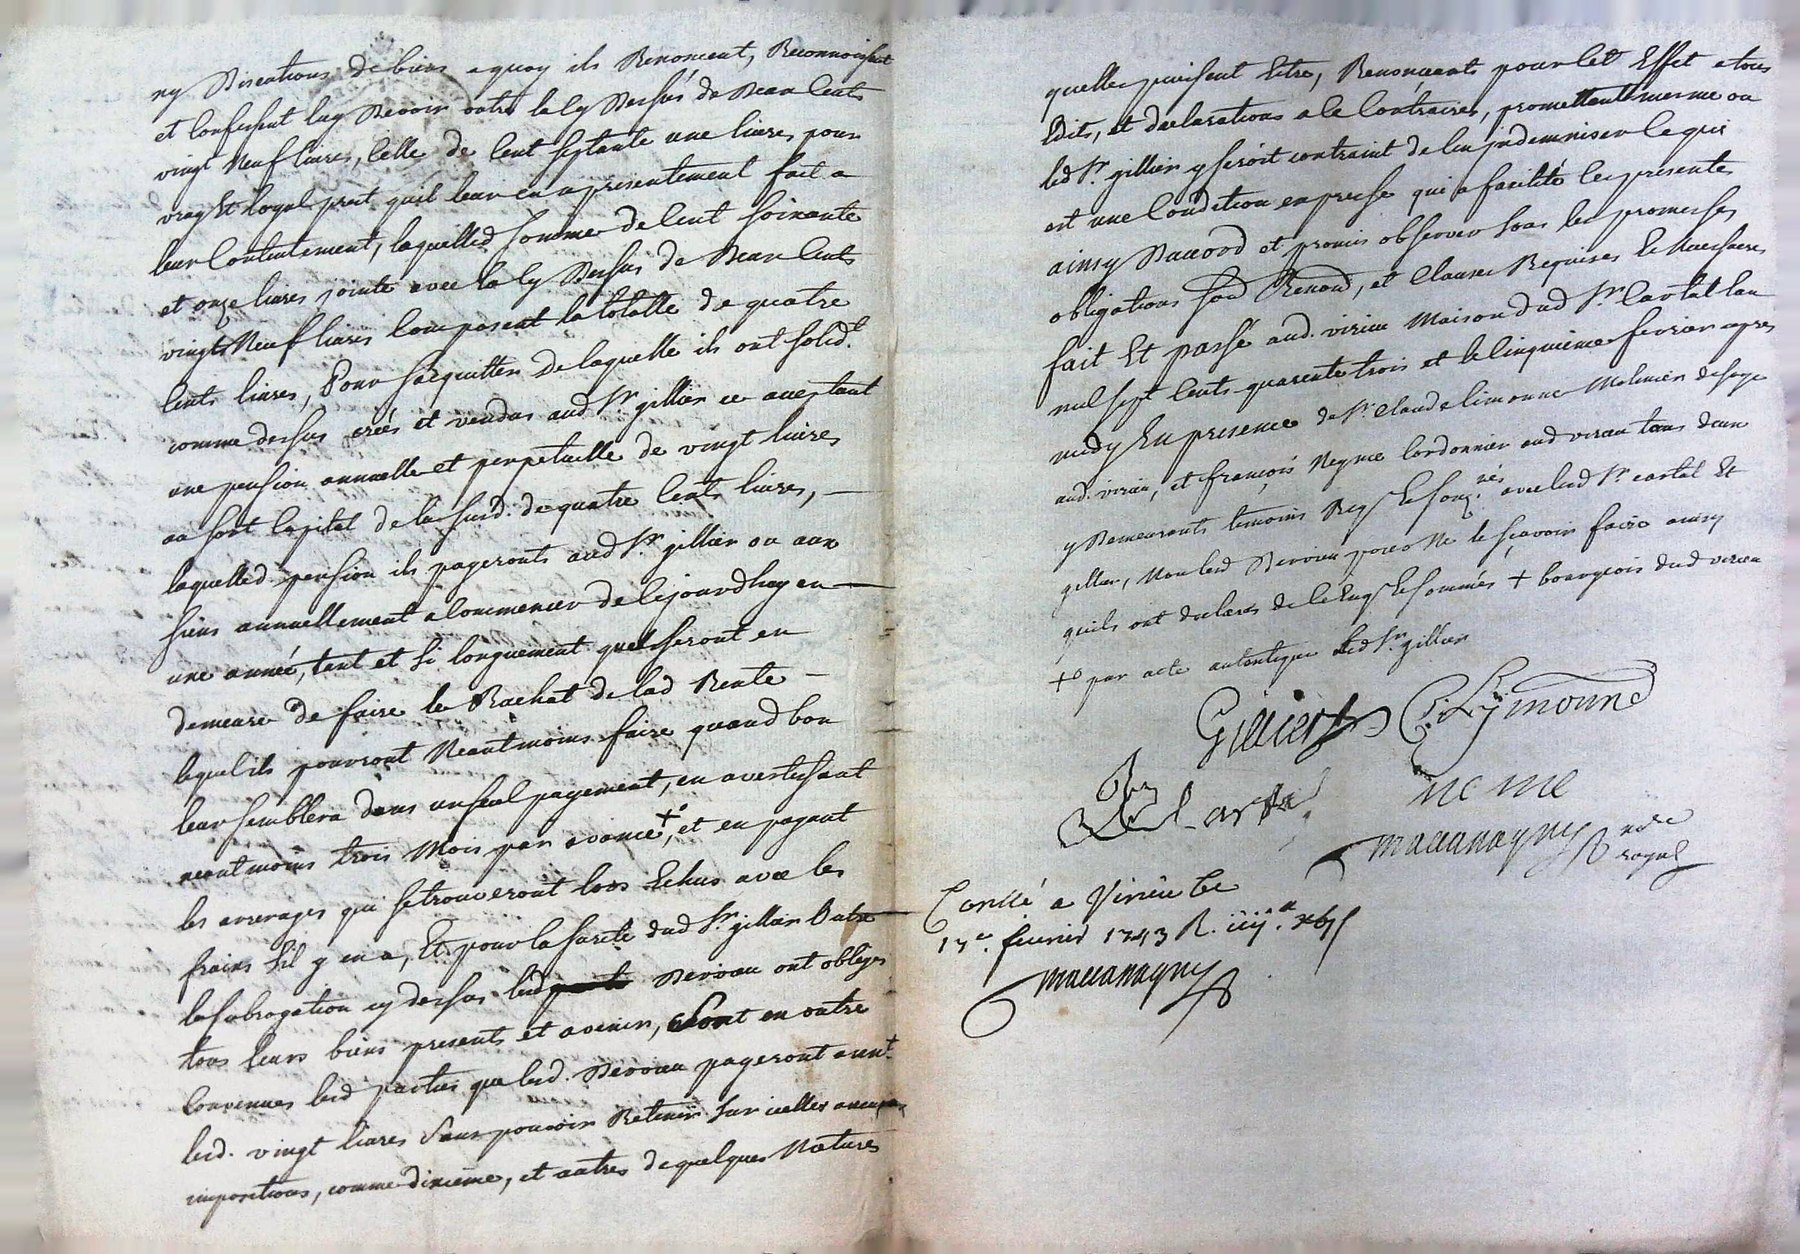 ny Discutions de biens a quoy ils Renoncent, Reconnoissent
et confessent luy Devoir outre la cy Dessus de Deux Cents
vingt Neuf livres, Celle de Cent septante une livres pour
vray Et loyal pret quil leur en a presentement fait a
leur Contentement, laquelled somme de Cent soixante
et onze livres jointe avec la cy Dessus de Deux Cents
vingt Neuf livres Composent la totalle de quatre
Cents livres, Pour sacquitter de laquelle ils ont solidt
comme dessus créés et vendus aud Sr gillier ce acceptant
une pension annuelle et perpetuelle de vingt livres
au sort Capital de la susd. de quatre Cents livres,
laquelled pension ils payeronts aud Sr gillier ou aux
siens annuellement a Commencer de Cejourdhuy en
une année, tant et si longuement quels seront en
demeure de faire le Rachat de lad Rente
lequel ils pourront Neantmoins faire quand bon
leur semblera dans un seul payement, en avertissant
neantmoins trois Mois par avance +o, et en payant
les arrerages qui se trouveront lors Echus avec les
fraix s'il y en a, Et pour la sureté dud Sr gillier Outre
la subrogation cy dessus lesd Dervou ont obligés
tous leurs biens presents et avenir, Sont en outre
Convenues lesd parties que lesd. Dervou payeront annt
lesd. vingt livres Sans pouvoir Retenir sur icelles aucunes
impositions, comme dixieme, et autres de quelques Natures
quelles puissent Estre, Renonceants pour Cet Effet a tous
Edits, et declarations a le Contraires, promettants mesme ou
led Sr gillier y seroit contraint de len indemniser Ce qui
est une Condition expresse qui a facilité les presentes
ainsy Daccord et promis observer sous les promesses
obligations soud Renond, et Clauses Requises Et Necessaires
fait Et passé aud. virieu Maison dud Sr Cartal Lan
mil sept Cents quarente trois et le Cinquieme fevrier apres
midy En presence de Sr Claude limonne Molinier de soye
aud. virieu, et françois Neyme Cordonnier aud virieu tous deux
y Demeurants temoins Reqs Et souz.nés avec led Sr cartal Et
gillier, Non lesd Dervou pour Ne le sçavoir faire ainsy
quils ont declarés de Ce Enqs Et sommés + bourgeois dud virieu
+o par acte autentique led Sr gillier
Gillier C Lymonne
Cartal neme
maccanagny nore
royal
Conllé a Virieu Ce
17e. fevrier 1743 R.
maccanagny